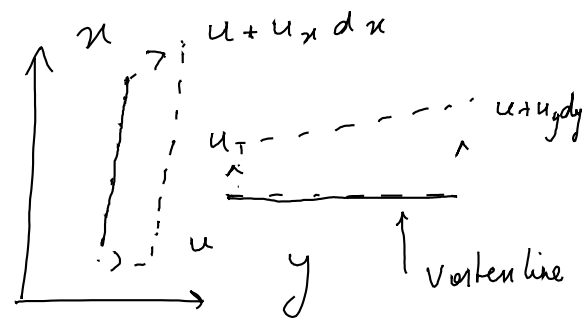 x
u + u_x dx
u
u + u_y dy
u
y
Vortex line